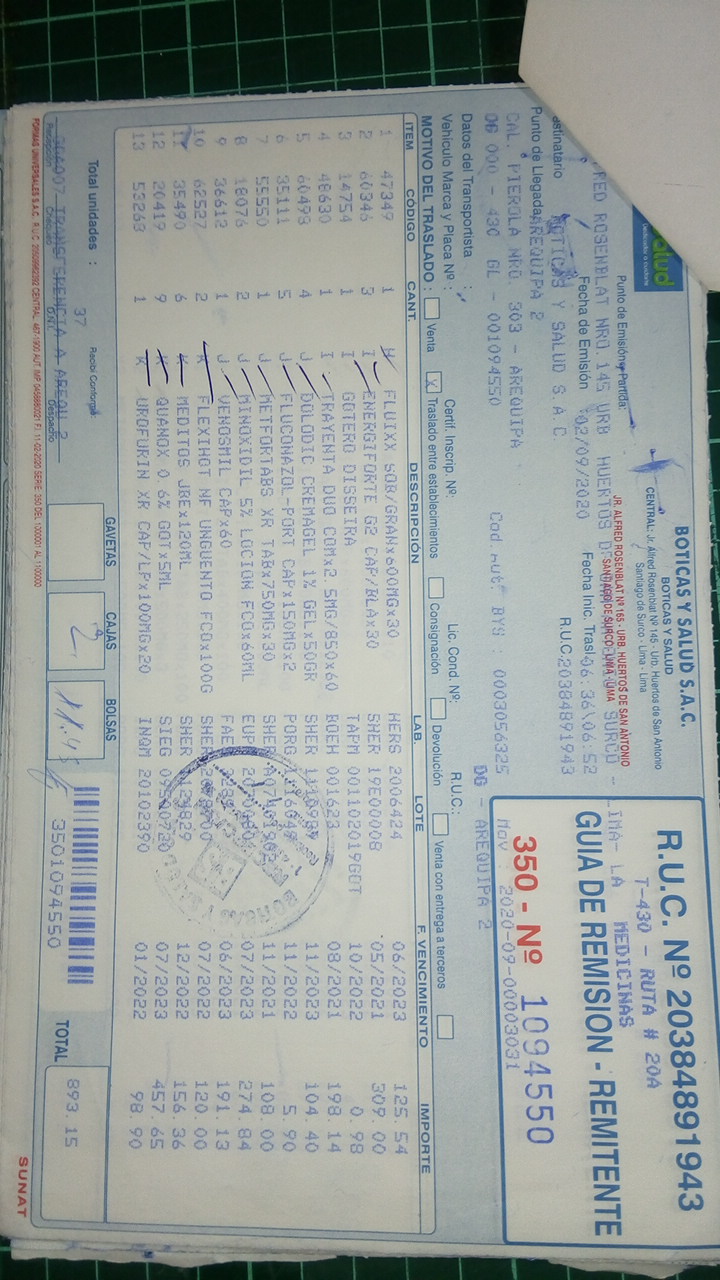 Salud
BOTICAS Y SALUD S.A.C.
BOTICAS Y SALUD
CENTRAL: Jr. Alfred Rosenblat Nº 145 - Urb. Huertos de San Antonio
Santiago de Surco - Lima - Lima
JR. ALFRED ROSENBLAT Nº 165 - URB. HUERTOS DE SAN ANTONIO
SANTIAGO DE SURCO - LIMA - LIMA
R.U.C. Nº 20384891943
T-430 - RUTA # 20A
MEDICINAS
GUIA DE REMISION - REMITENTE
350 - Nº 1094550
Mov : 2020-09-00003031
Punto de Emisión y Partida:
RED ROSENBLAT NRO. 145 URB HUERTOS D SURCO - LIMA- LA
Fecha de Emisión 02/09/2020 Fecha Inic. Trasl 06:36\06:52
Destinatario BOTICAS Y SALUD S.A.C. R.U.C. 20384891943
Punto de Llegada AREQUIPA 2
CAL. PIEROLA NRO. 303 - AREQUIPA DG - AREQUIPA 2
DG 000 - 430 GL - 001094550 Cod.mut. BYS : 0003056325
Datos del Transportista : R.U.C.:
Vehículo Marca y Placa Nº : Certif. Inscrip. Nº: Lic. Cond. Nº:
MOTIVO DEL TRASLADO : Venta X Traslado entre establecimientos Consignación Devolución Venta con entrega a terceros
ITEM CÓDIGO CANT. DESCRIPCIÓN LAB. LOTE F. VENCIMIENTO IMPORTE
1 47349 1 FLUIXX SOB/GRANx600MGx30 HERS 2006424 06/2023 125.54
2 60346 3 I ENERGIFORTE G2 CAP/BLAx30 SHER 19E00008 05/2021 309.00
3 14754 1 I GOTERO DISSEIRA TAPM 001102019GGT 10/2022 0.98
4 48630 1 I TRAYENTA DUO COMx2.5MG/850x60 BOEH 001623 08/2021 198.14
5 60493 4 J DOLODIC CREMAGEL 1% GELx50GR SHER 11/2023 104.40
6 35111 5 J FLUCONAZOL-PORT CAPx150MGx2 PORG 11/2022 5.90
7 55550 1 J METFORTABS XR TABx750MGx30 SHER 11/2021 108.00
8 18076 2 J MINOXIDIL 5% LOCION FCOx60ML EUF 07/2023 274.84
9 36612 1 J VENOSMIL CAPx60 FAE 06/2023 191.13
10 62527 2 K FLEXIHOT NF UNGUENTO FCOx100G SHER 07/2022 120.00
11 35490 6 K MEDITOS JBEx120ML SHER 12/2022 156.36
12 20419 9 K QUANOX 0.6% GOTx5ML SIEG 07/2023 457.65
13 53263 1 K UROFURIN XR CAP/LPx100MGx20 INQM 20102390 01/2022 98.90
Total unidades : 37 Recibi Conforme
GAVETAS CAJAS 2 BOLSAS
3501094550
TOTAL 893.15
006007 TRANSFERENCIA A AREQU 2
Recepción Chequeo D.N.I. Despacho
SUNAT